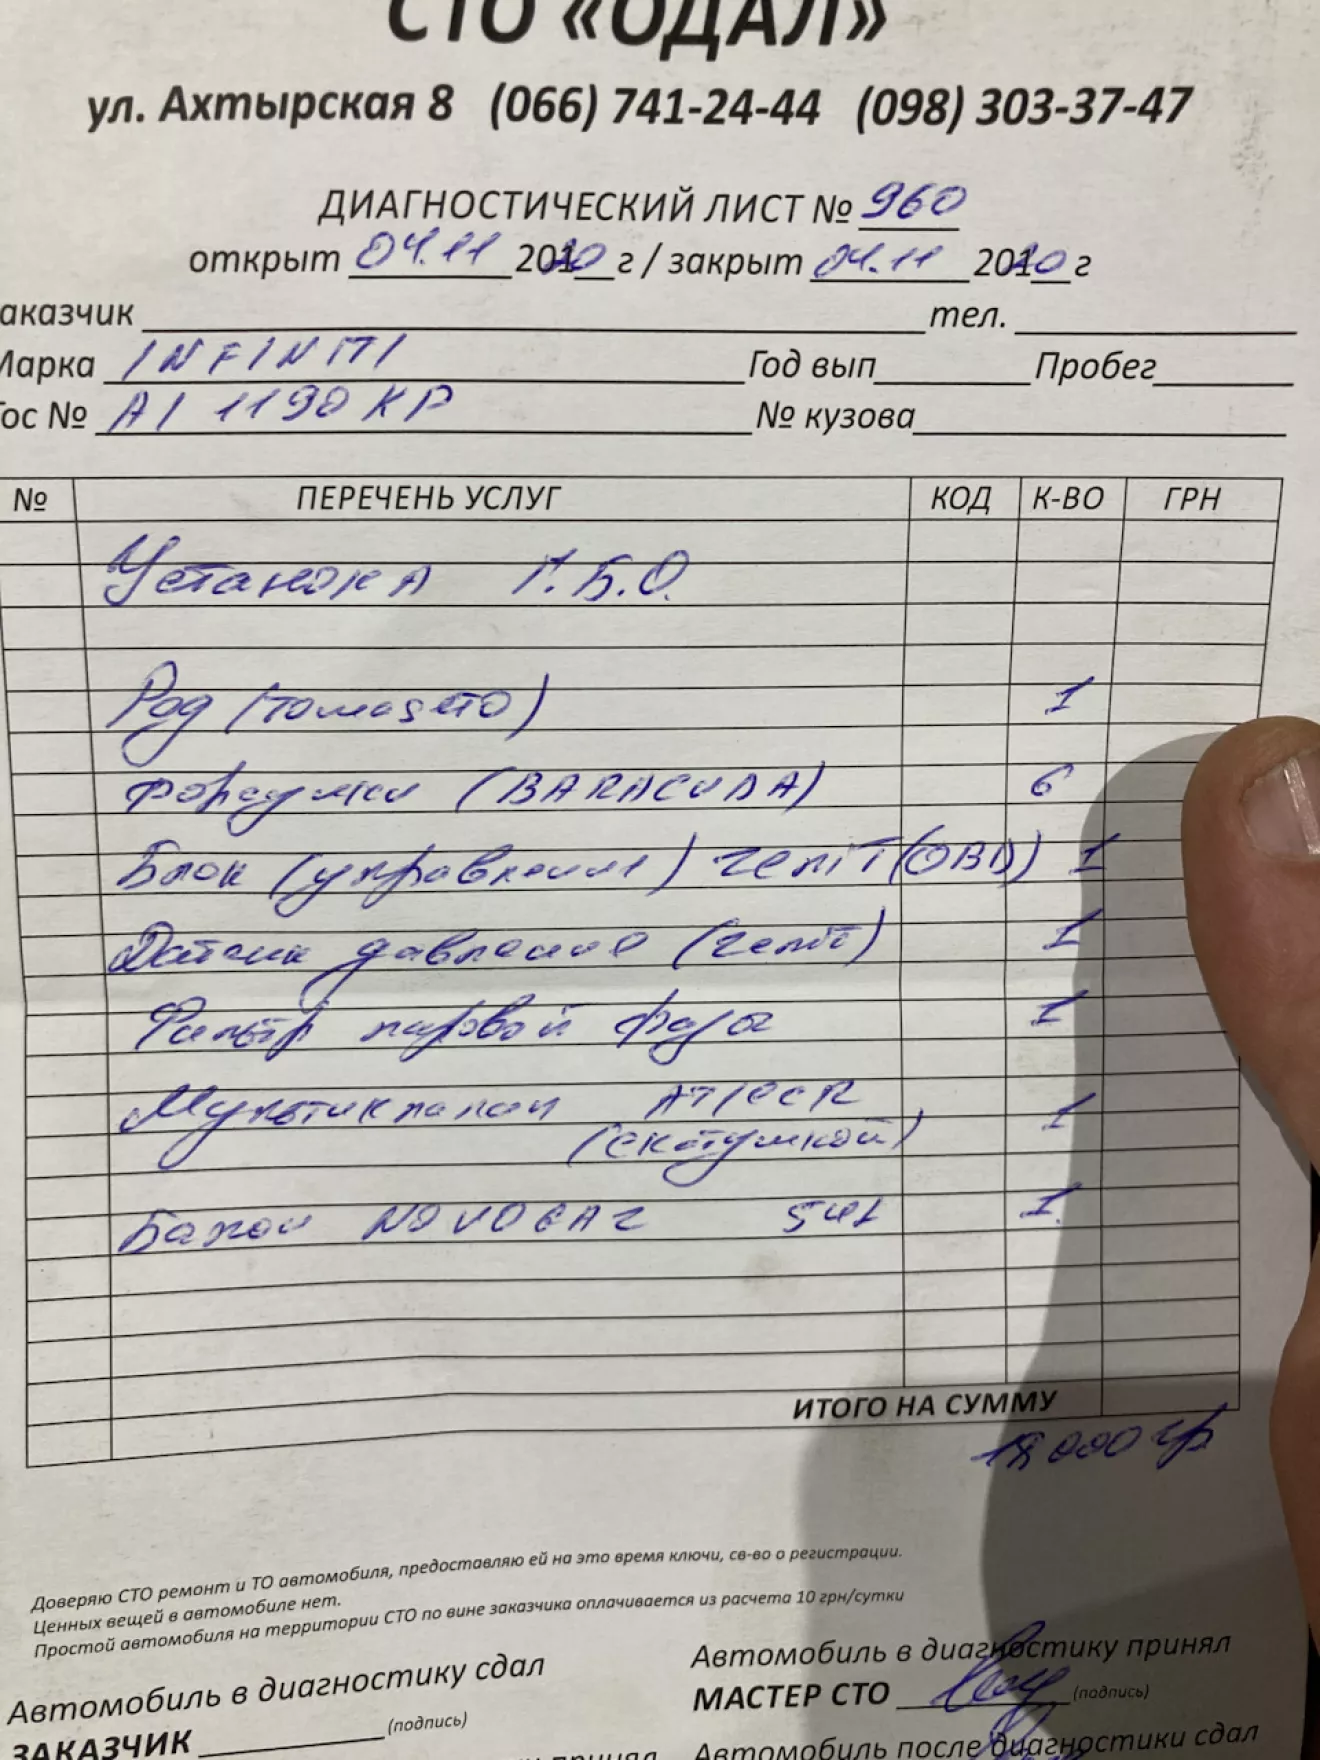 СТО «ОДАЛ»
ул. Ахтырская 8 (066) 741-24-44 (098) 303-37-47
ДИАГНОСТИЧЕСКИЙ ЛИСТ № 960
открыт 04.11 2020 г / закрыт 04.11 2020 г
аказчик тел.
Марка INFINITI Год вып Пробег
Гос № AI 1190 KP № кузова
№ ПЕРЕЧЕНЬ УСЛУГ КОД К-ВО ГРН
Установка Г.Б.О.
Род (Tomaseto) 1
Форсунки (BARACUDA) 6
Блок (управления) Zenit (OBD) 1
Датчик давления (Zenit) 1
Фильтр паровой фазы 1
Мультиклапан ATIKER 1
(с катушкой)
Балон NOVOGAZ 54L 1
ИТОГО НА СУММУ
18000 гр
Доверяю СТО ремонт и ТО автомобиля, предоставляю ей на это время ключи, св-во о регистрации.
Ценных вещей в автомобиле нет.
Простой автомобиля на территории СТО по вине заказчика оплачивается из расчета 10 грн/сутки
Автомобиль в диагностику сдал
ЗАКАЗЧИК (подпись)
Автомобиль в диагностику принял
МАСТЕР СТО (подпись)
Автомобиль после диагностики сдал